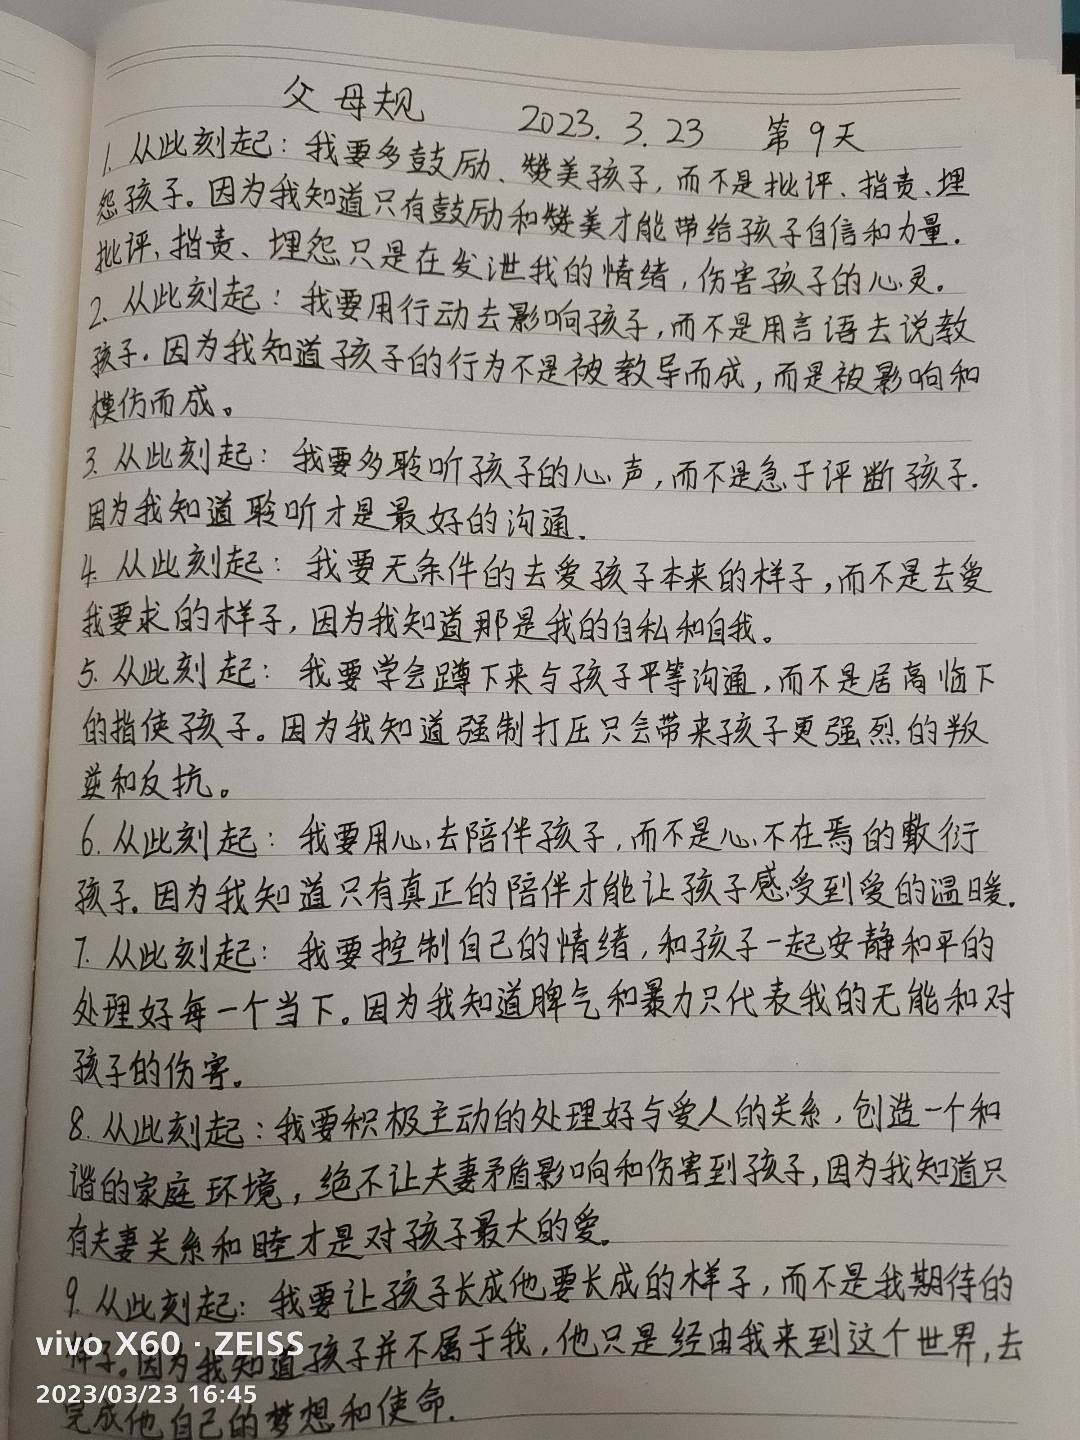 父母规 2023.3.23 第9天
1. 从此刻起：我要多鼓励、赞美孩子，而不是批评、指责、埋
怨孩子。因为我知道只有鼓励和赞美才能带给孩子自信和力量.
批评、指责、埋怨只是在发泄我的情绪，伤害孩子的心灵。
2. 从此刻起：我要用行动去影响孩子，而不是用言语去说教
孩子.因为我知道孩子的行为不是被教导而成，而是被影响和
模仿而成。
3. 从此刻起：我要多聆听孩子的心声，而不是急于评断孩子.
因为我知道聆听才是最好的沟通.
4. 从此刻起：我要无条件的去爱孩子本来的样子，而不是去爱
我要求的样子，因为我知道那是我的自私和自我。
5. 从此刻起：我要学会蹲下来与孩子平等沟通，而不是居高临下
的指使孩子。因为我知道强制打压只会带来孩子更强烈的叛
逆和反抗。
6. 从此刻起：我要用心去陪伴孩子，而不是心不在焉的敷衍
孩子.因为我知道只有真正的陪伴才能让孩子感受到爱的温暖.
7. 从此刻起：我要控制自己的情绪，和孩子一起安静和平的
处理好每一个当下。因为我知道脾气和暴力只代表我的无能和对
孩子的伤害。
8. 从此刻起：我要积极主动的处理好与爱人的关系，创造一个和
谐的家庭环境，绝不让夫妻矛盾影响和伤害到孩子，因为我知道只
有夫妻关系和睦才是对孩子最大的爱。
9. 从此刻起：我要让孩子长成他要长成的样子，而不是我期待的
样子。因为我知道孩子并不属于我，他只是经由我来到这个世界，去
完成他自己的梦想和使命.
vivo X60 · ZEISS
2023/03/23 16:45